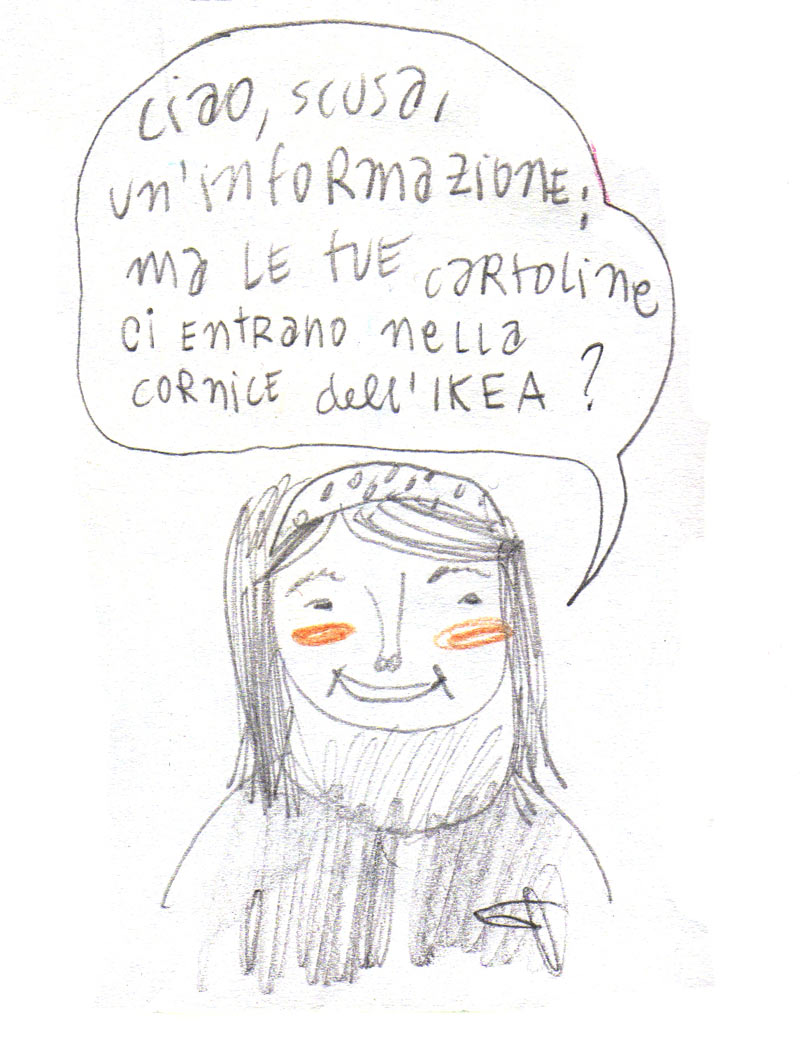 ciao, scusa,
un'informazione;
ma le tue cartoline
ci entrano nella
cornice dell'IKEA ?